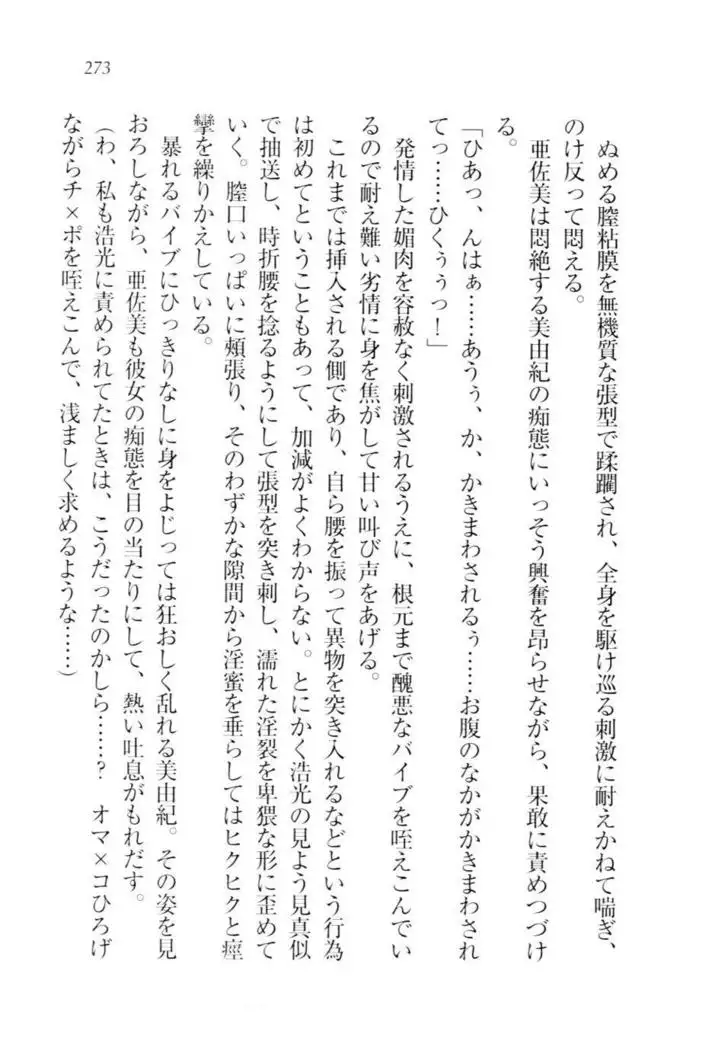 273
ぬめる膣粘膜を無機質な張型で蹂躙され、全身を駆け巡る刺激に耐えかねて喘ぎ、
のけ反って悶える。
亜佐美は悶絶する美由紀の痴態にいっそう興奮を昂らせながら、果敢に責めつづけ
る。
「ひあっ、んはぁ……あうぅ、か、かきまわされるぅ……お腹のなかがかきまわされ
てっ……ひくぅぅっ！」
発情した媚肉を容赦なく刺激されるうえに、根元まで醜悪なバイブを咥えこんでい
るので耐え難い劣情に身を焦がして甘い叫び声をあげる。
これまでは挿入される側であり、自ら腰を振って異物を突き入れるなどという行為
は初めてということもあって、加減がよくわからない。とにかく浩光の見よう見真似
で抽送し、時折腰を捻るようにして張型を突き刺し、濡れた淫裂を卑猥な形に歪めて
いく。膣口いっぱいに頬張り、そのわずかな隙間から淫蜜を垂らしてはヒクヒクと痙
攣を繰りかえしている。
暴れるバイブにひっきりなしに身をよじっては狂おしく乱れる美由紀。その姿を見
おろしながら、亜佐美も彼女の痴態を目の当たりにして、熱い吐息がもれだす。
（わ、私も浩光に責められてたときは、こうだったのかしら……？　オマ×コひろげ
ながらチ×ポを咥えこんで、浅ましく求めるような……）